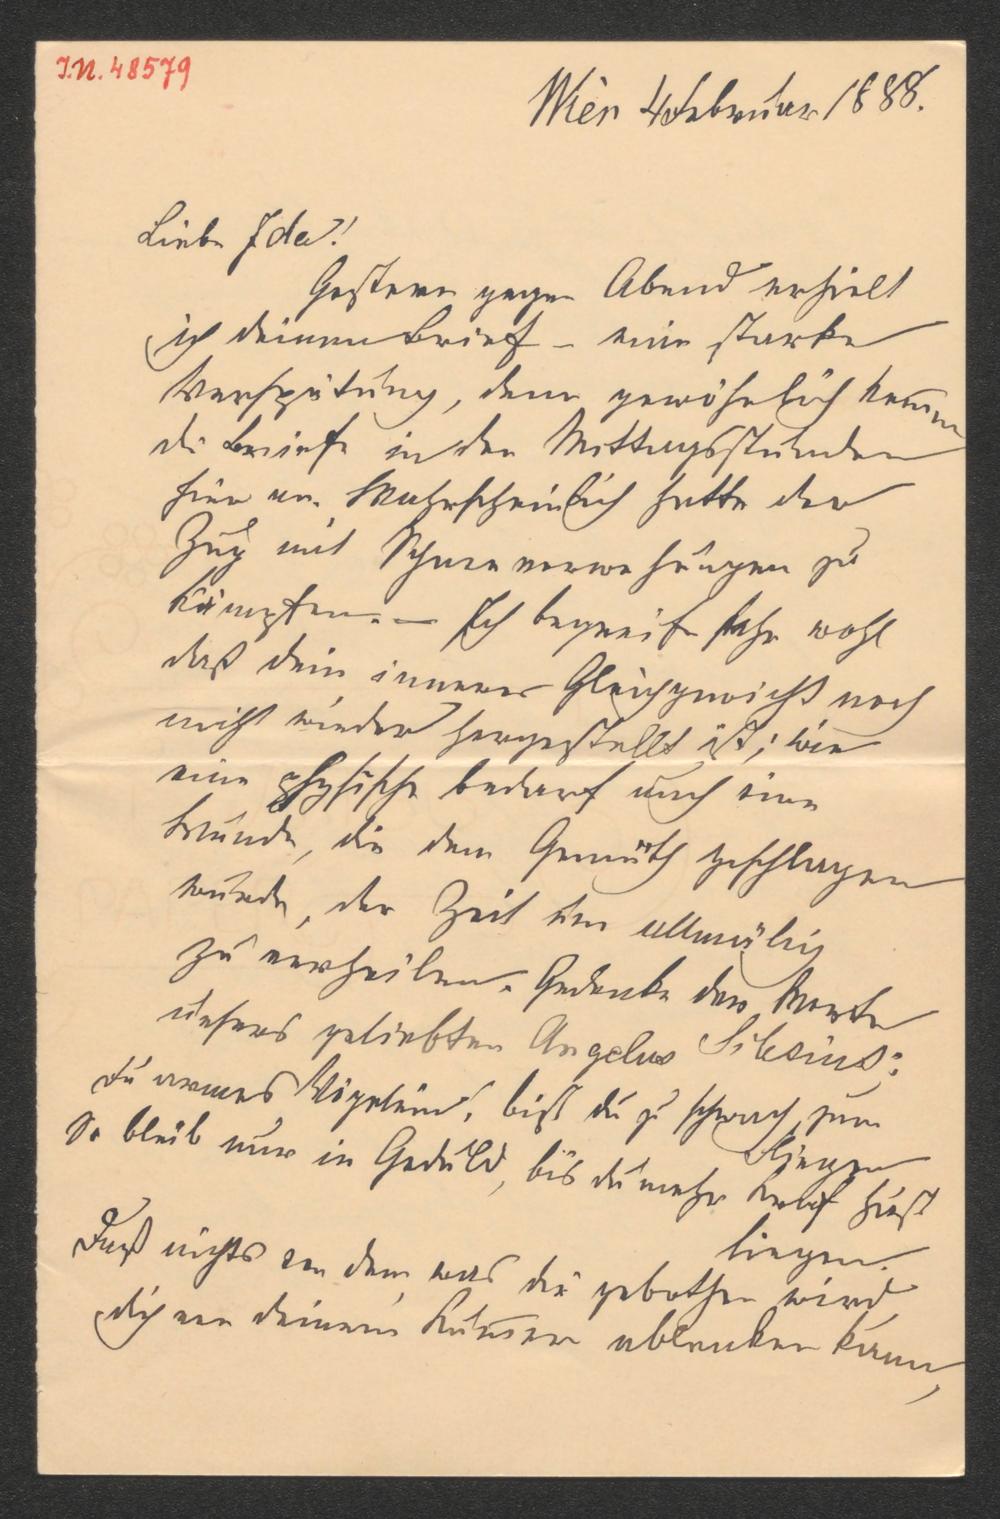 I.N. 48579
Wien 4 Februar 1888.
Liebe Ida!
Gestern gegen Abend erhielt
ich deinen Brief – eine starke
Verspätung, denn gewöhnlich kommen
die Briefe in den Mittagsstunden
hier an. Wahrscheinlich hatte der
Zug mit Schneeverwehungen zu
kämpfen. – Ich begreife sehr wohl
daß dein inneres Gleichgewicht noch
nicht wieder hergestellt ist; wie
eine physische bedarf auch eine
Wunde, die dem Gemüth geschlagen
wurde, der Zeit um allmälig
zu verheilen. Gedenke der Worte
unsers geliebten Angelus Silesius:
Du armes Vögelein, bist du zu schwach zum
fliegen
So bleib nur in Geduld, bis du mehr Kraft hast
liegen.
Daß nichts von dem was dir gebothen wird,
dich von deinem Kummer ablenken kann,